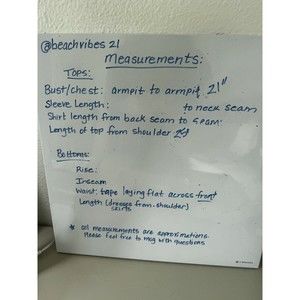 @beachvibes 21
Measurements:
Tops:
Bust/chest: armpit to armpit 21"
Sleeve Length: to neck seam
Shirt length from back seam to seam:
Length of top from shoulder
Bottoms:
Rise:
Inseam
Waist: tape laying flat across front
Length (dresses from shoulder)
skirts
* all measurements are approximations
Please feel free to msg with questions